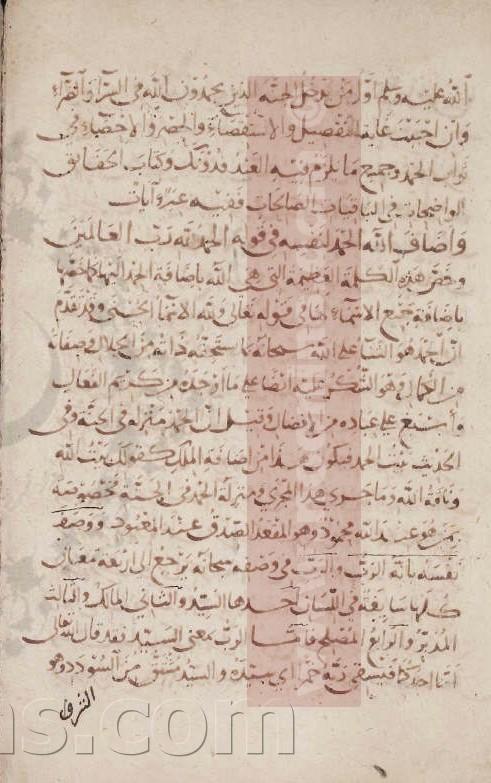 الله عليه وسلم اول من يدخل الجنة الذين يحمدون الله في السراء والضراء
وان احببت غاية التفصيل والاستقصاء والحصر والاحصاء في
ثواب الحمد وجميع ما يلزم فيه العبد فدونك وكتاب الحقائق
الواضحات في الباقيات الصالحات ففيه عبر وآيات
واضاف الله الحمد لنفسه في قوله الحمد لله رب العالمين
وخص هذه الكلمة العظيمة التي هي الله باضافة الحمد اليها كما خصها
باضافة جميع الاسماء في قوله تعالى ولله الاسماء الحسنى وقد تقدم
ان الحمد هو الثناء على الله سبحانه بما تستحقه ذاته من الجلال وصفاته
من الكمال وهو الشكر له ايضا على ما اوجده من كريم الفعال
واسبغ على عباده من الافضال وقيل ان الحمد منزلة في الجنة وفي
الحديث بيت الحمد فيكون هذا من اضافة الملك كقولك بيت الله
وناقة الله وما جرى هذا المجرى ومنزلة الحمد في الجنة مخصوصة
بمن هو عند الله محمود وهو المقعد الصدق عند المعبود ووصف
نفسه بانه الرب والرب في وصفه سبحانه يرجع الى اربعة معان
كلها سايغة في اللسان احدها السيد والثاني المالك والثالث
المدبر والرابع المصلح فاما الرب بمعنى السيد فقد قال الله تعالى
اما احدكما فيسقي ربه خمرا اي سيده والسيد مشتق من السودد وهو
الشرف
ns.com